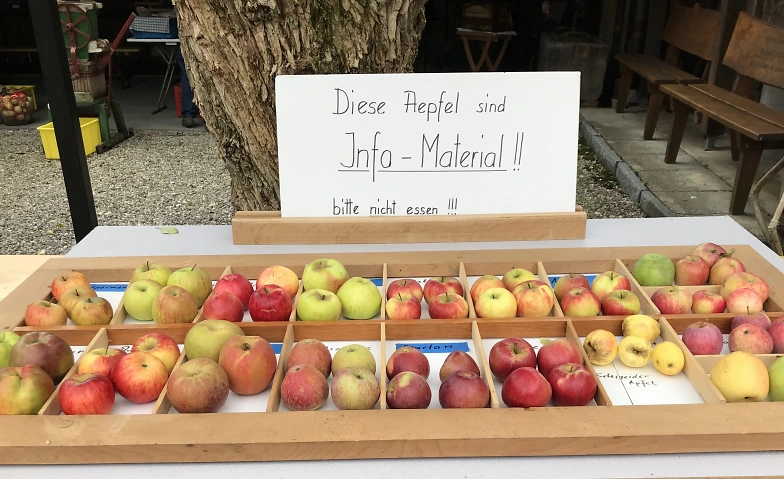 Diese Aepfel sind
Info - Material !!
bitte nicht essen !!!
Schneider
Apfel